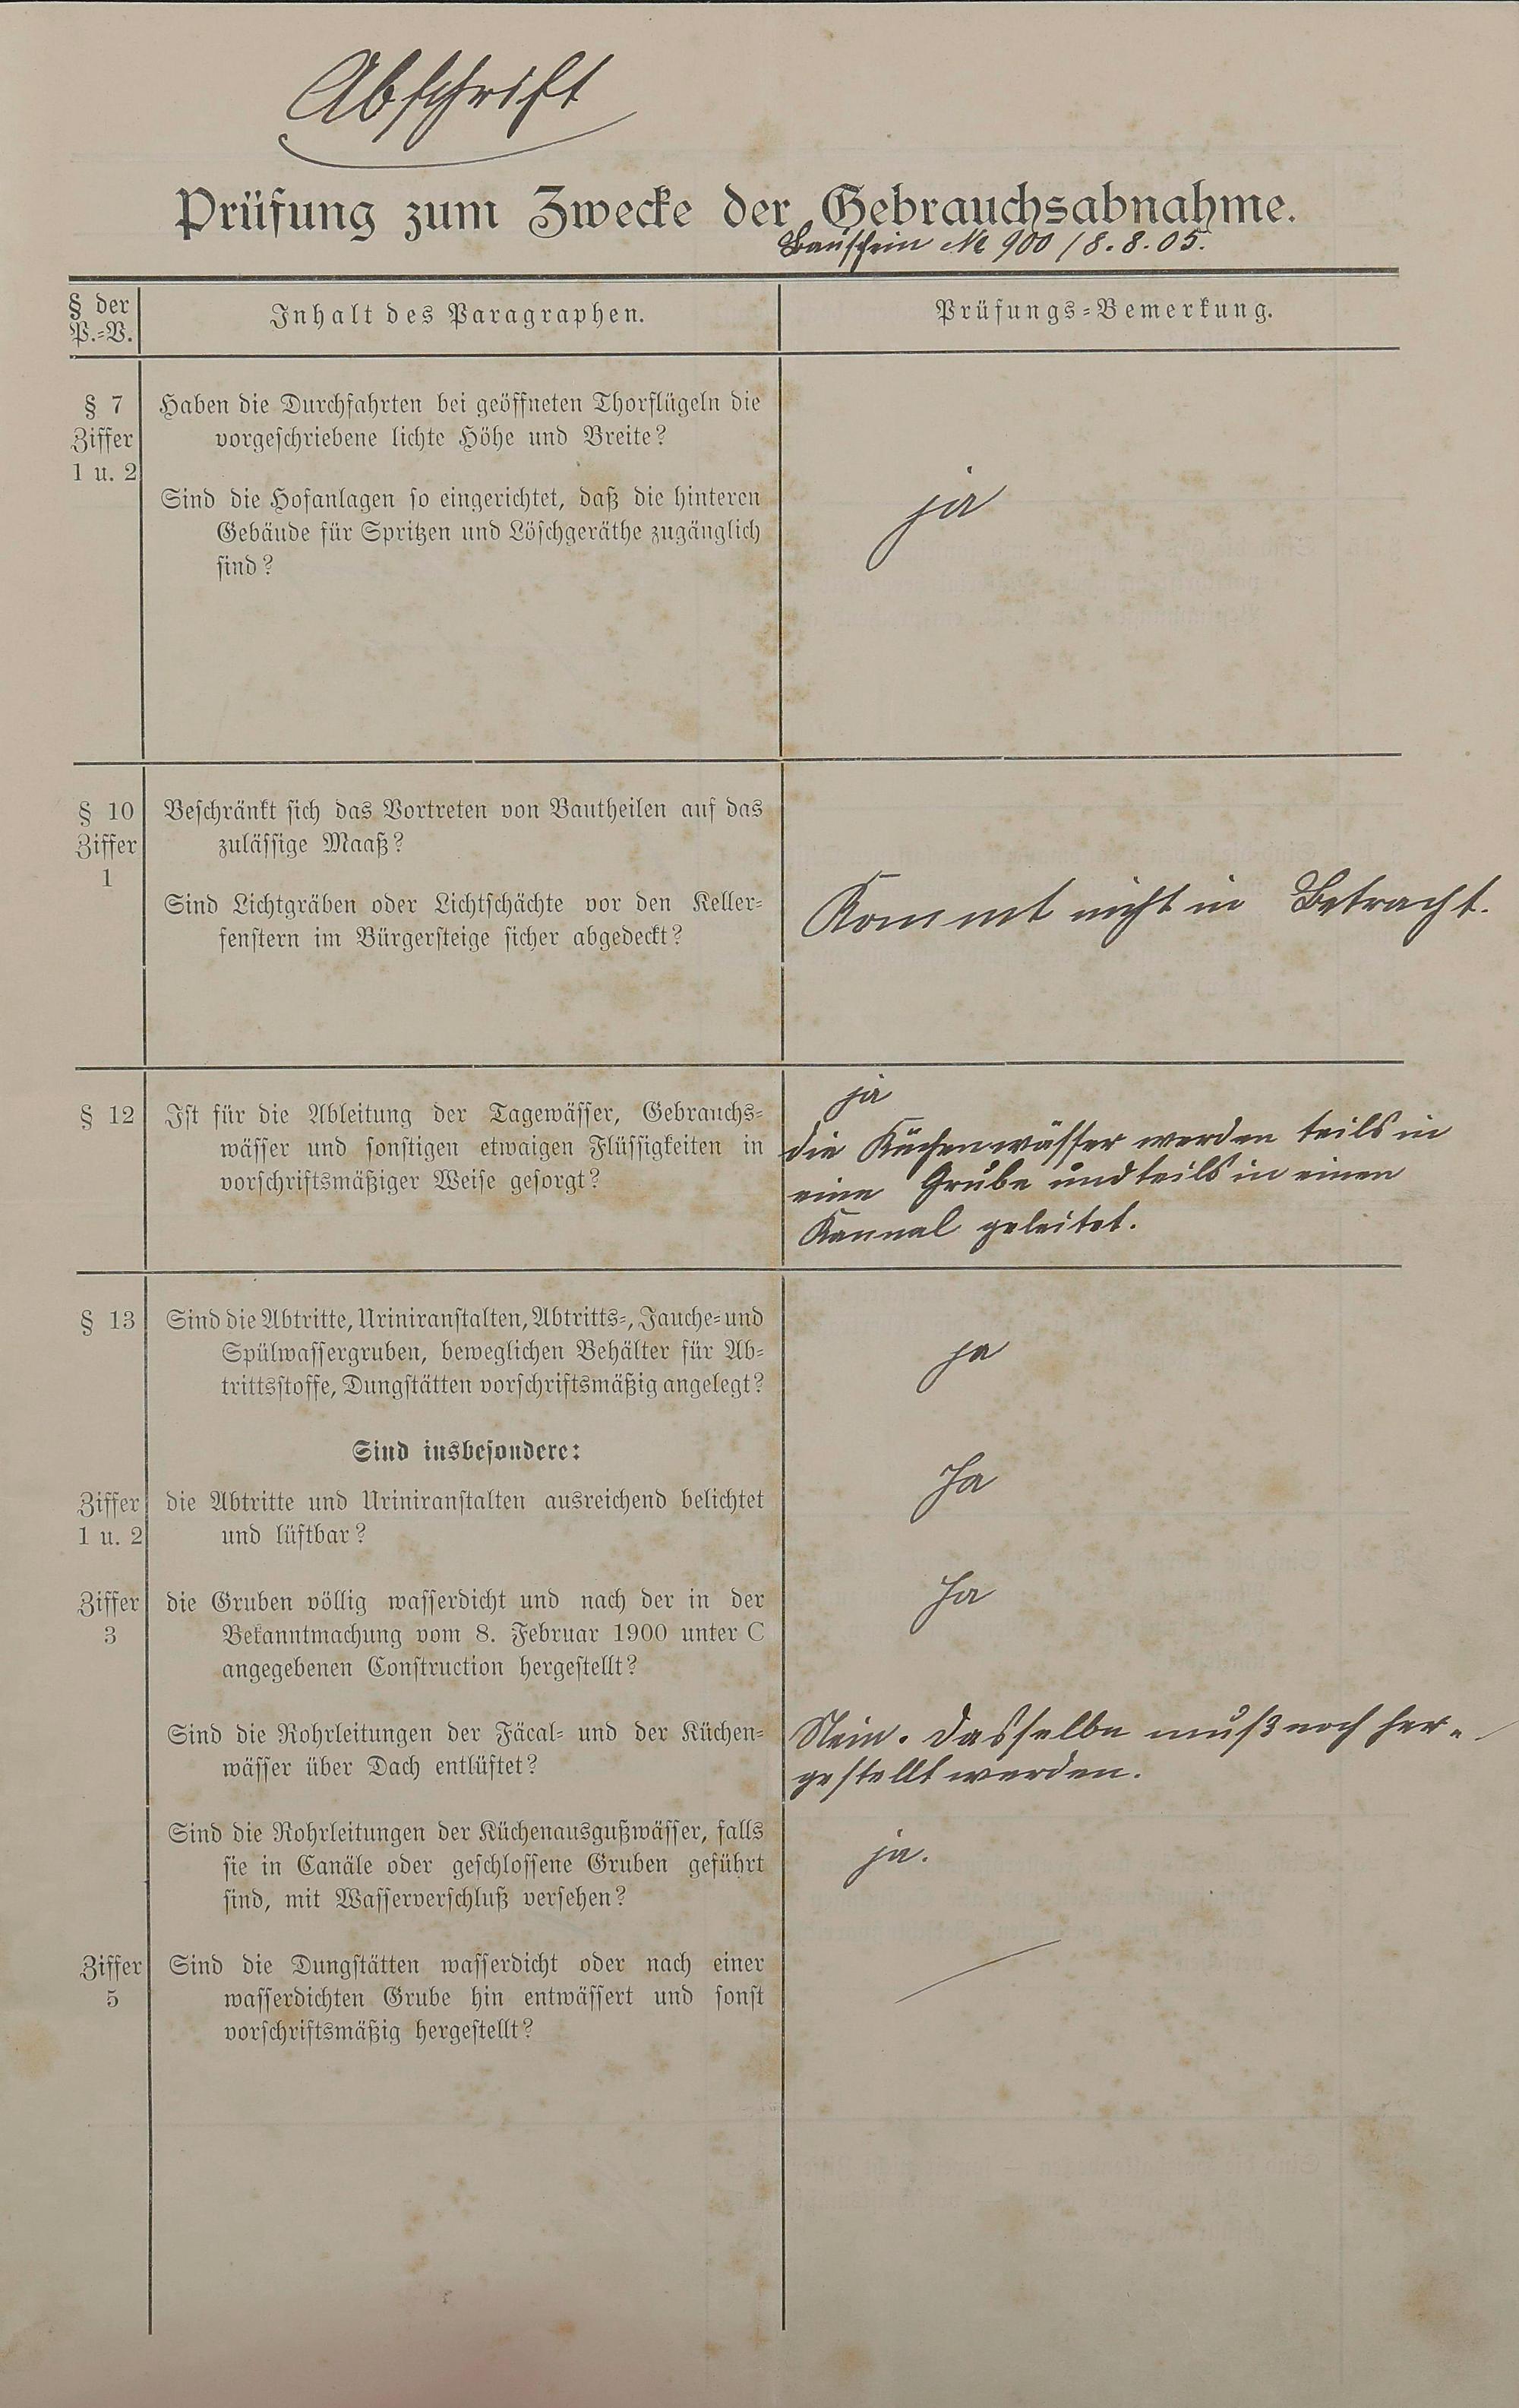 Abschrift
Prüfung zum Zwecke der Gebrauchsabnahme.
Bauschein № 900 / 8. 8. 05.
§ der
P.-V.
Inhalt des Paragraphen.
Prüfungs-Bemerkung.
§ 7
Ziffer
1 u. 2
Haben die Durchfahrten bei geöffneten Thorflügeln die
vorgeschriebene lichte Höhe und Breite?
Sind die Hofanlagen so eingerichtet, daß die hinteren
Gebäude für Spritzen und Löschgeräthe zugänglich
sind?
ja
§ 10
Ziffer
1
Beschränkt sich das Vortreten von Bautheilen auf das
zulässige Maaß?
Sind Lichtgräben oder Lichtschächte vor den Keller-
fenstern im Bürgersteige sicher abgedeckt?
Kommt nicht in Betracht.
§ 12
Ist für die Ableitung der Tagewässer, Gebrauchs-
wässer und sonstigen etwaigen Flüssigkeiten in
vorschriftsmäßiger Weise gesorgt?
ja
die Küchenwässer werden teils in
eine Grube und teils in einen
Kannal geleitet.
§ 13
Sind die Abtritte, Uriniranstalten, Abtritts-, Jauche- und
Spülwassergruben, beweglichen Behälter für Ab-
trittsstoffe, Dungstätten vorschriftsmäßig angelegt?
ja
Sind insbesondere:
Ziffer
1 u. 2
die Abtritte und Uriniranstalten ausreichend belichtet
und lüftbar?
Ja
Ziffer
3
die Gruben völlig wasserdicht und nach der in der
Bekanntmachung vom 8. Februar 1900 unter C
angegebenen Construction hergestellt?
Ja
Sind die Rohrleitungen der Fäcal- und der Küchen-
wässer über Dach entlüftet?
Nein. Dasselbe muß noch her-
gestellt werden.
Sind die Rohrleitungen der Küchenausgußwässer, falls
sie in Canäle oder geschlossene Gruben geführt
sind, mit Wasserverschluß versehen?
ja.
Ziffer
5
Sind die Dungstätten wasserdicht oder nach einer
wasserdichten Grube hin entwässert und sonst
vorschriftsmäßig hergestellt?